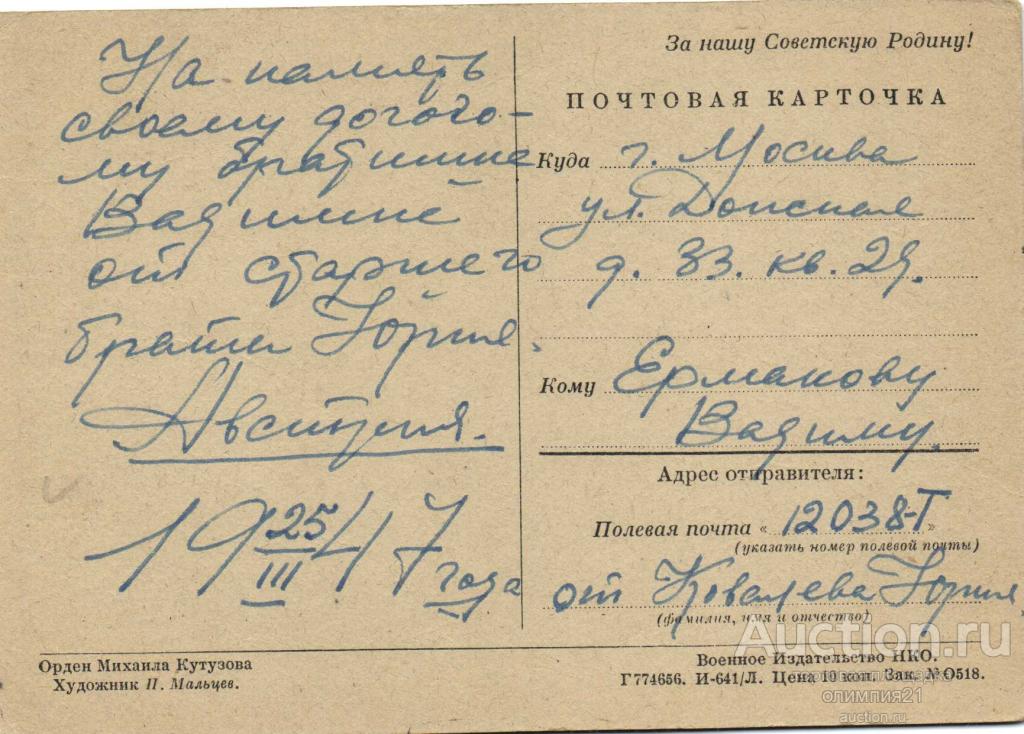 На память
своему дорого-
му братишке
Вадимке
от старшего
брата Юрия
Австрия.
19 25/III 47 года
За нашу Советскую Родину!
ПОЧТОВАЯ КАРТОЧКА
Куда г. Москва
ул. Донская
д. 33. кв. 29.
Кому Ермакову
Вадиму.
Адрес отправителя:
Полевая почта «12038-Т»
(указать номер полевой почты)
от Ковалева Юрия
(фамилия, имя и отчество)
Орден Михаила Кутузова
Художник П. Мальцев.
Военное Издательство НКО.
Г774656. И-641/Л. Цена 10 коп. Зак. №О518.
Auction.ru
олимпия21
auction.ru